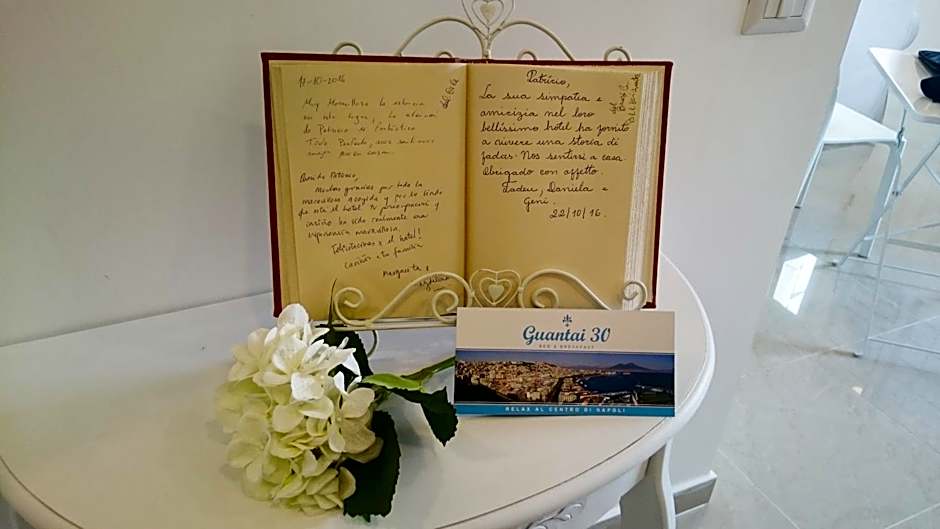 11-XI-2016
Muy Maravillosa la estancia
en este lugar, la atención
de Patricio es fantástica
Todo Perfecto,
mejor que en casa.
Querido Patricio,
Muchas gracias por toda la
maravillosa acogida y por lo lindo
que está el hotel. Tu preocupación y
cariño ha sido realmente una
experiencia maravillosa.
Felicitaciones x el hotel!
Cariños a tu familia
Margarita y
Patricio,
La sua simpatia e
amicizia nel loro
bellíssimo hotel ha fornito
a vivere una storia di
fadas. Nos sentirsi a casa.
Obrigado con affetto.
Tadeu, Daniela e
Geni.
22/10/16.
Guantai 30
BED & BREAKFAST
RELAX AL CENTRO DI NAPOLI